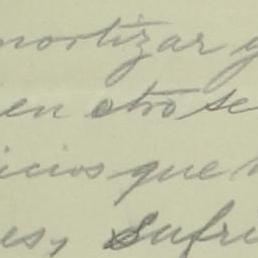 mortizar y
en otro se
icios que
es, sufri